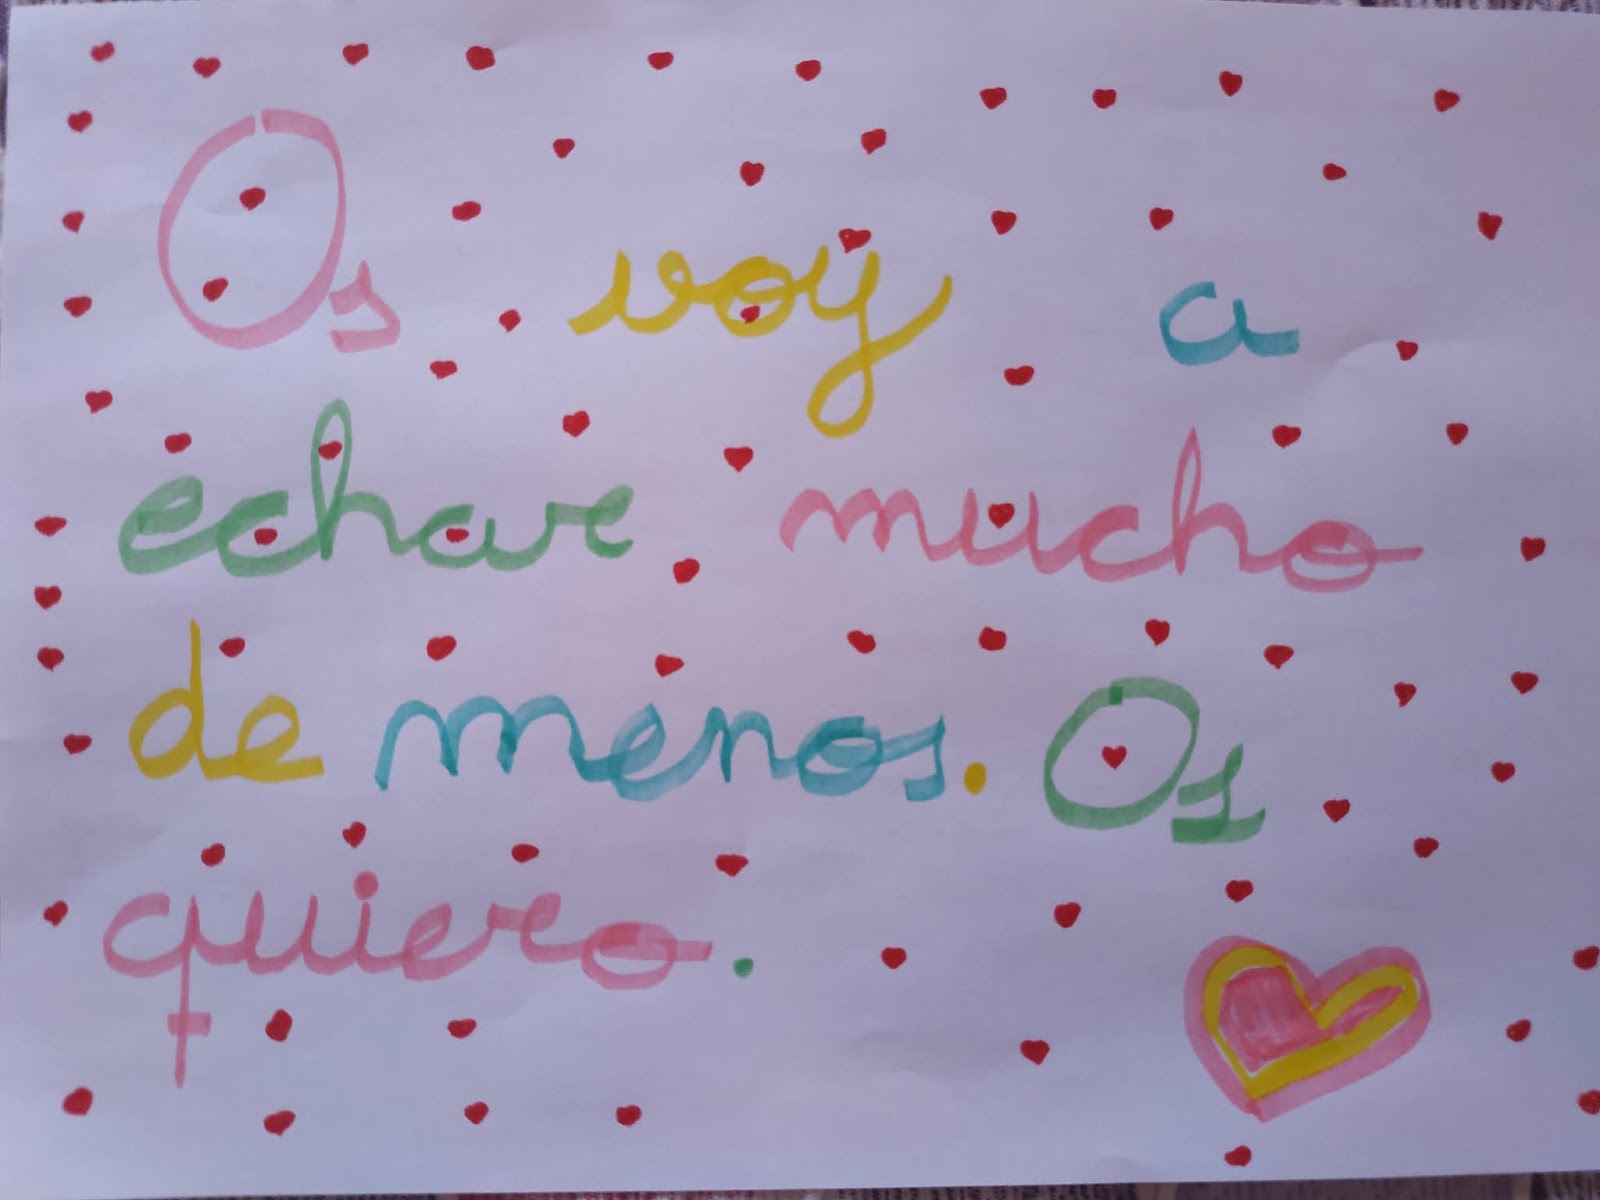 Os voy a
echar mucho
de menos. Os
quiero.